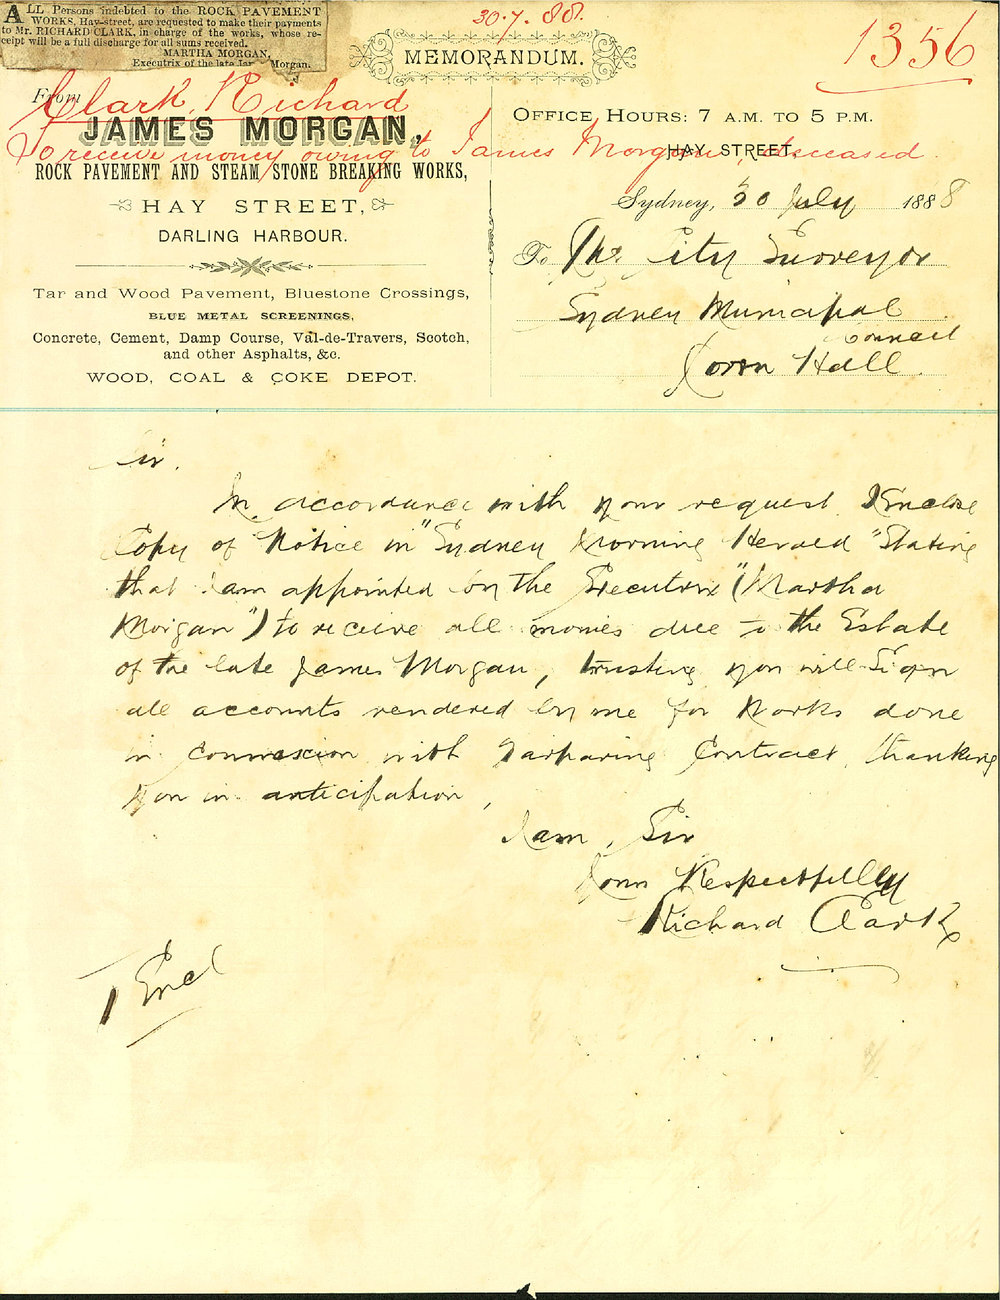 ALL Persons indebted to the ROCK PAVEMENT
WORKS, Hay-street, are requested to make their payments
to Mr. RICHARD CLARK, in charge of the works, whose re-
ceipt will be a full discharge for all sums received.
MARTHA MORGAN,
Executrix of the late Morgan.
30.7.88.
MEMORANDUM.
1356
From
Clark, Richard
JAMES MORGAN,
To receive money owing to James Morgan, deceased.
ROCK PAVEMENT AND STEAM STONE BREAKING WORKS,
HAY STREET,
DARLING HARBOUR.
Tar and Wood Pavement, Bluestone Crossings,
BLUE METAL SCREENINGS,
Concrete, Cement, Damp Course, Val-de-Travers, Scotch,
and other Asphalts, &c.
WOOD, COAL & COKE DEPOT.
OFFICE HOURS: 7 A.M. TO 5 P.M.
HAY STREET,
Sydney, 30 July 1888
To The City Surveyor
Sydney Municipal
Council
Town Hall
Sir.
In accordance with your request I Enclose
Copy of Notice in "Sydney Morning Herald" Stating
that I am appointed by the Executrix "(Martha
Morgan") to receive all monies due to the Estate
of the late James Morgan, trusting you will Sign
all accounts rendered by me for Works done
in connexion with Tarparing Contract, thanking
you in anticipation,
I am, Sir
Yours Respectfully
Richard Clark
1 Encl